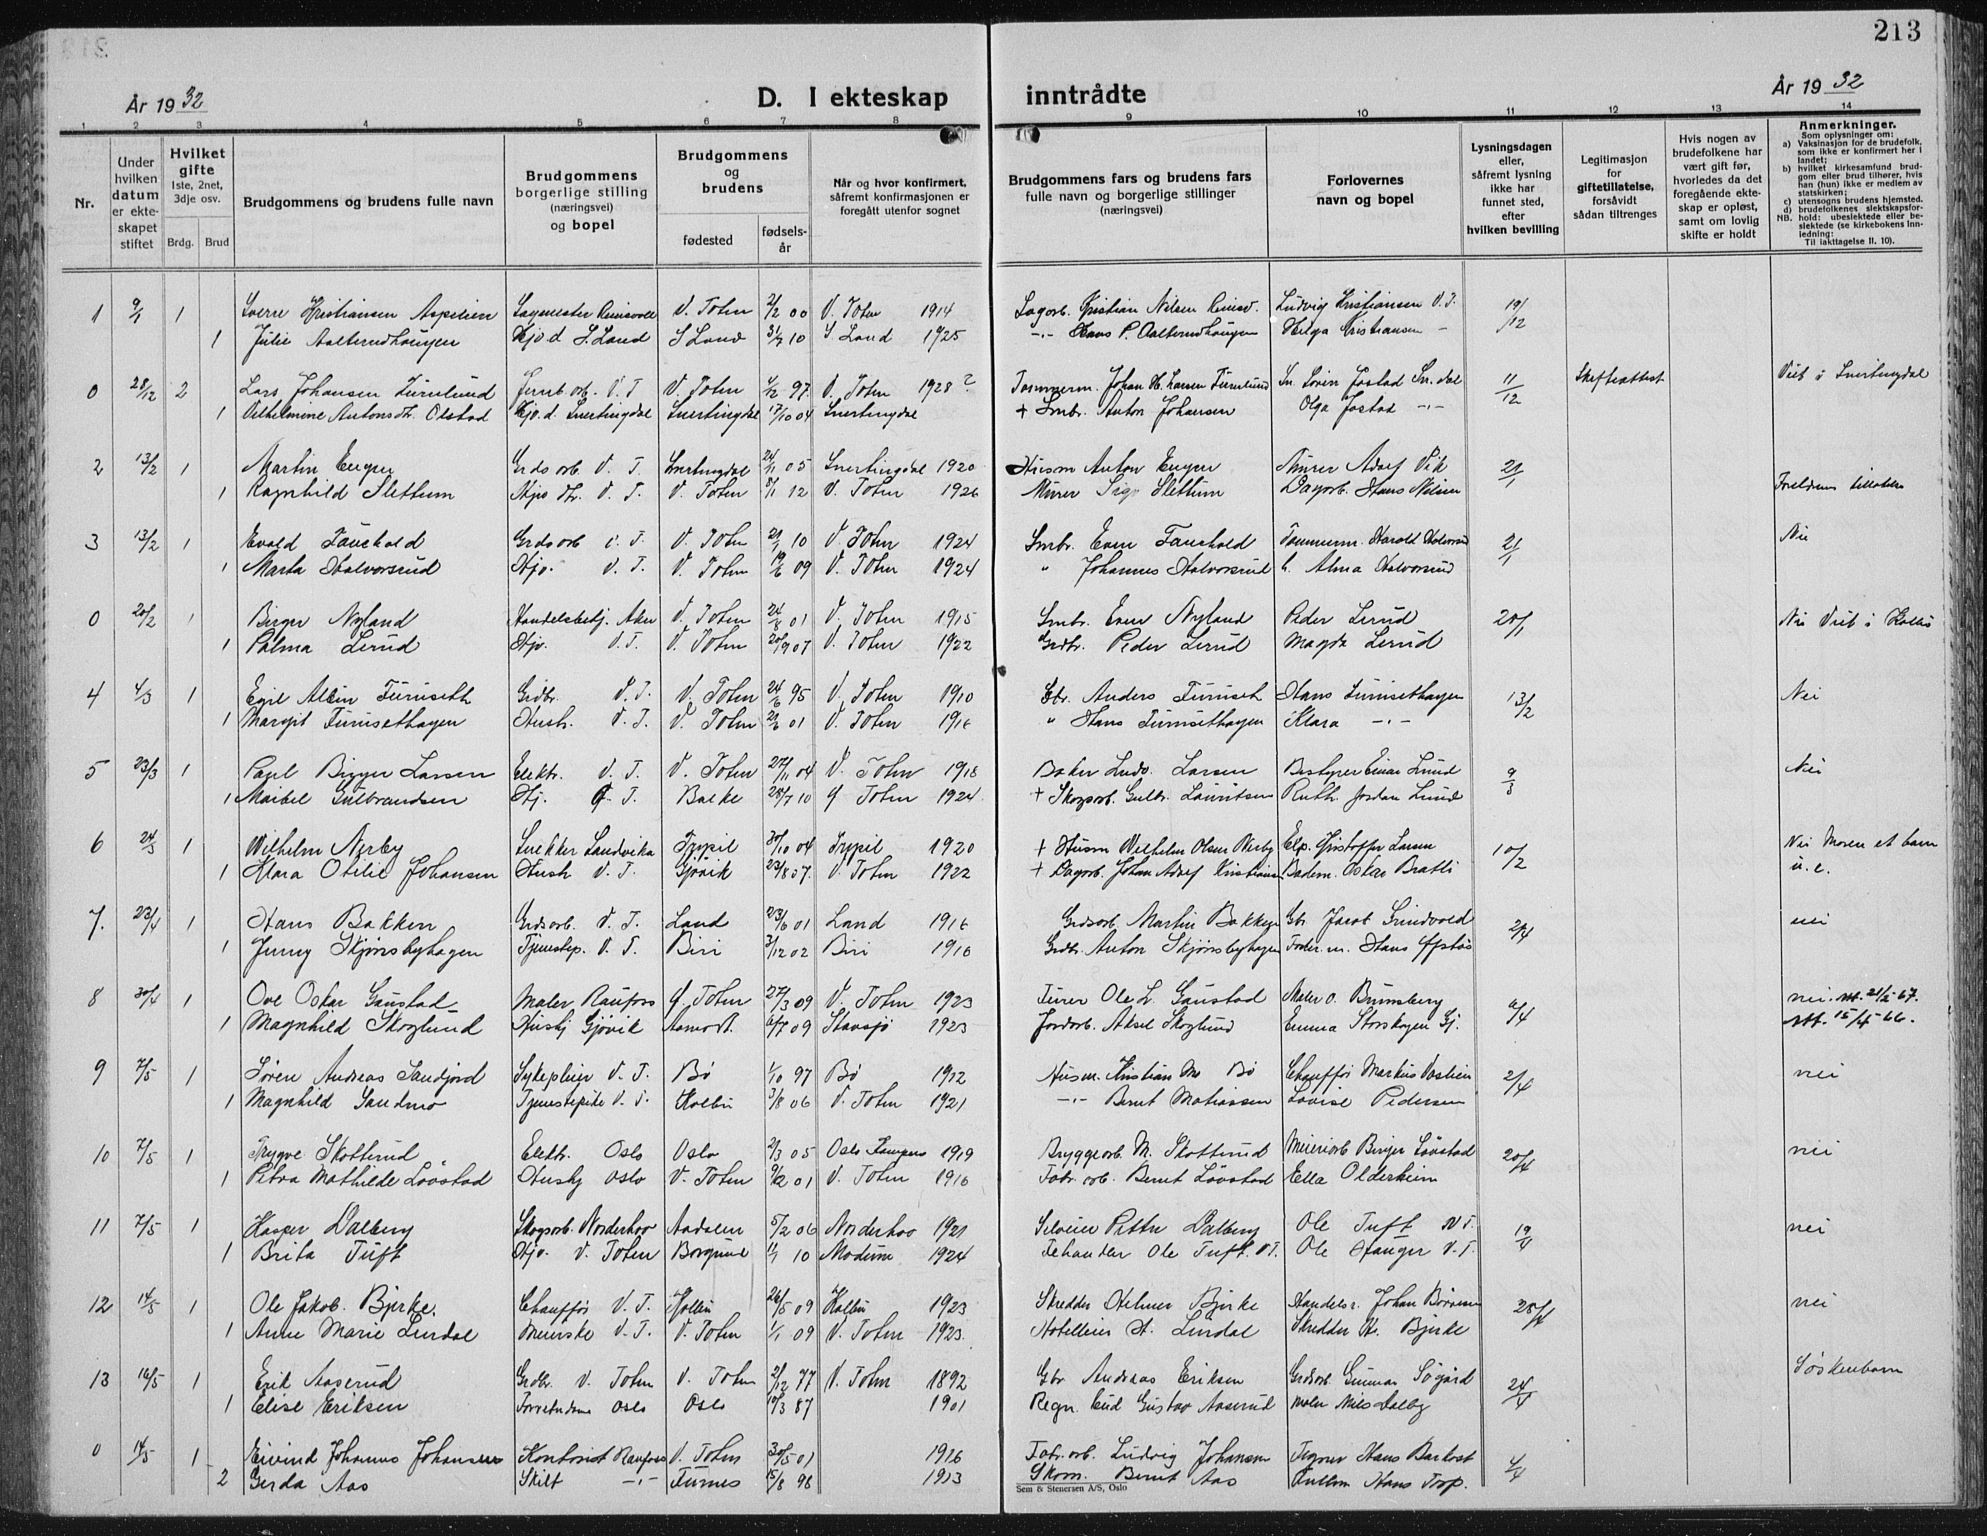 213
År 1932 D. I ekteskap inntrådte År 1932
1 2 3 4 5 6 7 8 9 10 11 12 13 14
Nr.
Under hvilken datum er ekteskapet stiftet
Hvilket gifte 1ste, 2net, 3dje osv. Brdg. Brud
Brudgommens og brudens fulle navn
Brudgommens borgerlige stilling (næringsvei) og bopel
Brudgommens og brudens fødested fødselsår
Når og hvor konfirmert, såfremt konfirmasjonen er foregått utenfor sognet
Brudgommens fars og brudens fars fulle navn og borgerlige stillinger (næringsvei)
Forlovernes navn og bopel
Lysningsdagen eller, såfremt lysning ikke har funnet sted, efter hvilken bevilling
Legitimasjon for giftetillatelse, forsåvidt sådan tiltrenges
Hvis nogen av brudefolkene har vært gift før, hvorledes da det foregående ekteskap er opløst, samt om lovlig skifte er holdt
Anmerkninger. Som oplysninger om: a) Vaksinasjon for de brudefolk, som ikke er konfirmert her i landet; b) hvilket kirkesamfund brudgom eller brud tilhører, hvis han (hun) ikke er medlem av statskirken; c) utensogns brudens hjemsted. d) brudefolkenes slektskapsforhold: ubeslektede eller beslektede (se kirkebokens Innledning: NB. Til iakttagelse II. 10).
1 9/1 1 Sverre Kristiansen Aspelien Sagmester V. Toten 2/2 00 V. Toten 1914 Sagarb. Kristian Nilsen Ludvig Kristiansen V.T. 19/12
1 Julie Aalterudhaugen Hjv d S. Land S Land 10 S Land 1925 -"- Hans P. Aalterudhaugen Helga Kristiansen -
0 28/12 2 Lars Johansen Furulund Jernb arb. V. T V. Toten 97 V. Toten 1928? Tømmerm. Johan H. Larsen Furulund Søren Jostad 11/12 Skifteattest Viet i Snertingdal
1 Vilhelmine Antonsdtr. Olstad Hjv. d. Snertingdal Snertingdal 17/10 04 Snertingdal + Smbr. Anton Johansen Olga Jostad -"-
2 13/2 1 Martin Enger Grdsarb V. T. Snertingdal 24/11 05 Snertingdal 1920 Husm Anton Enger Murer Adolf Vik 21/1
1 Ragnhild Slettum Hjv dtr. V. T. V. Toten 8/1 12 V. Toten 1926 Murer Slettum Dagarb. Hans Nilsen
3 13/2 1 Evald Faukald Grdsarb V. T. V. Toten 10 V Toten 1924 Smbr. Even Faukald Tømmerm. Harald Halvorsrud 21/1 Nei
1 Marta Halvorsrud Hjv. V. T. V. Toten 09 V. Toten 1924 " Johannes Halvorsrud Alma Halvorsrud
0 20/2 1 Birger Nyland Handelsbetj. Aker V. Toten 24/8 01 V. Toten 1915 Smbr. Even Nyland Peder Lerud 20/1 Nei Viet i Kolbu
1 Palma Lerud Hjv. V.T. V. Toten 20/9 07 V. Toten 1922 Grdbr. Peder Lerud Magda Lerud
4 4/3 1 Egil Albin Furuseth Grdbr. V. T. V. Toten 24/6 95 V. Toten 1910 Gbr. Anders Furuseth Hans Furusethagen 13/2 Nei
1 Margit Furusethagen Hush. V. T. V. Toten 01 V. Toten 1916 " Hans Furusethagen Klara -"-
5 23/3 1 Paul Birger Larsen Elektr. V. T. V. Toten 04 V. Toten 1918 Baker Ludv. Larsen Bestyrer Einar Lund 9/3 Nei
1 Maibel Gulbrandsen Hj. Ø T. Balke 28/7 10 Ø Toten 1924 + Skogsarb. Gulbr. Lauritsen Ruth Jordan Lund
6 24/3 1 Wilhelm Nerby Snekker Sandvika Trysil 30/10 04 Trysil 1920 + Husm Wilhelm Olsen Nerby Elp. Kristoffer Larsen 10/2 Nei Moren et barn
1 Klara Otilie Johansen Hush V. T. Gjøvik 23/8 07. V. Toten 1922 + Dagarb. Johan Adolf Kristiansen Badem. Oskar Bratli u. e.
7. 23/4 1 Hans Bakken Grdsarb. V. T. Land 23/6 01 Land 1916 Grdsarb Martin Bakken Gbr Jacob Grindvold 2/4 nei
1 Jenny Skjørsbyhagen Tjenestep. V. T. Biri 3/12 02 Biri 1916 Grdbr. Anton Skjørsbyhagen Hans
8 30/4 1 Ove Oskar Gaustad Maler Raufoss Ø. Toten 27/3 09 V. Toten 1923 Furer Ole L. Gaustad Maler O. Brunsberg 6/4 nei. 21/2-67.
1 Magnhild Skoglund Hushj Gjøvik 6/7 09 Stavsjø 1923 Jordarb. Aksel Skoglund Emma Storskogen Gj. 15/4-66.
9 7/5 1 Søren Andreas Sandjord Sykepleier V. T. Bø 1/10 97 Bø 1912 Husm. Kristian Bø Chauffør Markus Vestlien 2/4 nei
1 Magnhild Sandmo Tjenestepike V. T. Kolbu 3/8 06 V. Toten 1921 -"- Bernt Matiassen Lovise Pedersen
10 7/5 1 Trygve Skotterud Elektr. Oslo Oslo 2/3 05 Oslo Kampen 1919 Bryggearb M. Skotterud Meieriarb Birger Løvstad 20/4 nei
1 Petra Mathilde Løvstad Hushj Oslo V. Toten 01 V. Toten 1916 Fabr. arb. Bernt Løvstad Ella Olderheim
11 7/5 1 Kasper Dalberg Skogsarb. Norderhov Aadalen 5/2 06 Norderhov 1921 Selveier Petter Dalberg Ole Tuft V T. 19/4 nei
1 Brita Tuft Hjv. V. Toten Borgund 10 Modum 1924 Ole Tuft. V T. Ole Hauger V. T.
12 14/5 1 Ole Jakob. Bjerke. Chauffør V. T. Kolbu 26/5 09 Kolbu 1923 Skredder Helmer Bjerke Handels r. Johan 28/4 nei
1 Anne Marie Lindal Meierske V. T. V. Toten 1/1 09 V. Toten 1923. Hotelleier H. Lindal Skredder H. Bjerke
13 16/5 1 Erik Aaserud Grdbr V. Toten V. Toten 2/12 77 V. Toten 1892 Gbr Andreas Eriksen Grdsarb. Gunnar Søgård 24/4 Søskenbarn
1 Elise Eriksen Oslo Oslo 10/3 87 1901 Gustav Aaserud Maler Nils Dalby
0 14/5 1 Eivind Johannes Johansen Kontorist Raufoss V. Toten 30/5 01 1916 Fabr. arb. Ludvig Johansen Tegner Hans 4/4
2 Gerda Aas Skilt -"- Furnes 15/8 98 1913 Skom. Bernt Aas Hans Torp.
Sem & Stenersen A/S, Oslo